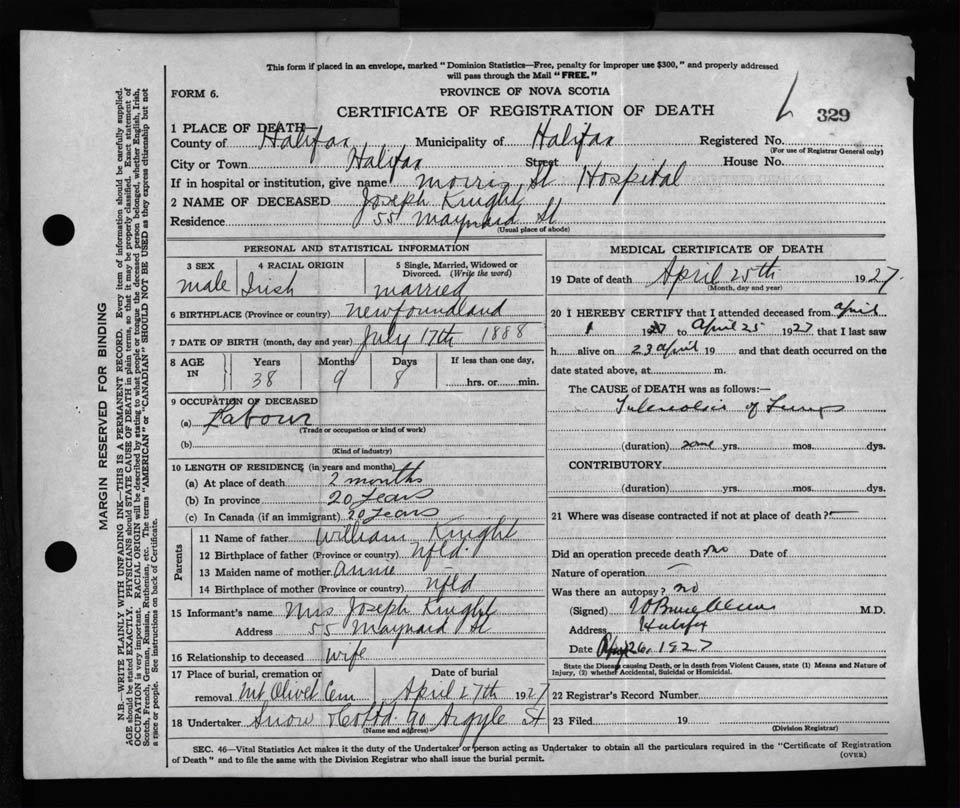 This form if placed in an envelope, marked "Dominion Statistics—Free, penalty for improper use $300," and properly addressed
will pass through the Mail "FREE."
FORM 6.
PROVINCE OF NOVA SCOTIA
CERTIFICATE OF REGISTRATION OF DEATH
L 329
1 PLACE OF DEATH—
County of Halifax Municipality of Halifax Registered No.
(For use of Registrar General only)
City or Town Halifax Street House No.
If in hospital or institution, give name Morris St Hospital
2 NAME OF DECEASED Joseph Knight
Residence 55 Maynard St
(Usual place of abode)
PERSONAL AND STATISTICAL INFORMATION
3 SEX 4 RACIAL ORIGIN 5 Single, Married, Widowed or
Divorced. (Write the word)
male Irish married
6 BIRTHPLACE (Province or country) Newfoundland
7 DATE OF BIRTH (month, day and year) July 17th 1888
8 AGE IN Years Months Days If less than one day,
38 9 8 hrs. or min.
9 OCCUPATION OF DECEASED
(a) Labour
(Trade or occupation or kind of work)
(b)
(Kind of industry)
10 LENGTH OF RESIDENCE (in years and months)
(a) At place of death 2 months
(b) In province 20 years
(c) In Canada (if an immigrant) 20 years
Parents
11 Name of father William Knight
12 Birthplace of father (Province or country) Nfld.
13 Maiden name of mother Annie
14 Birthplace of mother (Province or country) Nfld
15 Informant's name Mrs Joseph Knight
Address 55 Maynard St
16 Relationship to deceased wife
17 Place of burial, cremation or Date of burial
removal Mt Olivet Cem April 27th 1927
18 Undertaker Snow & Co Ltd. 90 Argyle St
(Name and address)
MEDICAL CERTIFICATE OF DEATH
19 Date of death April 25th 1927.
(Month, day and year)
20 I HEREBY CERTIFY that I attended deceased from April
1 1927 to April 25 1927, that I last saw
h alive on 23 April 19 and that death occurred on the
date stated above, at m.
The CAUSE of DEATH was as follows:—
Tuberculosis of Lungs
(duration) some yrs. mos. dys.
CONTRIBUTORY
(duration) yrs. mos. dys.
21 Where was disease contracted if not at place of death? —
Did an operation precede death? no Date of
Nature of operation —
Was there an autopsy? no
(Signed) M.D.
Address Halifax
Date 26. 1927
State the Disease causing Death, or in death from Violent Causes, state (1) Means and Nature of
Injury, (2) whether Accidental, Suicidal or Homicidal.
22 Registrar's Record Number
23 Filed 19
(Division Registrar)
SEC. 46—Vital Statistics Act makes it the duty of the Undertaker or person acting as Undertaker to obtain all the particulars required in the "Certificate of Registration
of Death" and to file the same with the Division Registrar who shall issue the burial permit.
(OVER)
MARGIN RESERVED FOR BINDING
N.B.—WRITE PLAINLY WITH UNFADING INK—THIS IS A PERMANENT RECORD. Every item of information should be carefully supplied.
AGE should be stated EXACTLY. PHYSICIANS should STATE CAUSE OF DEATH in plain terms, so that it may be properly classified. Exact statement of
OCCUPATION is very important. RACIAL ORIGIN will be described by stating to what people or tongue the deceased person belonged, whether English, Irish,
Scotch, French, German, Russian, Ruthenian, etc. The terms "AMERICAN" or "CANADIAN" SHOULD NOT BE USED as they express citizenship but not
a race or people. See instructions on back of Certificate.